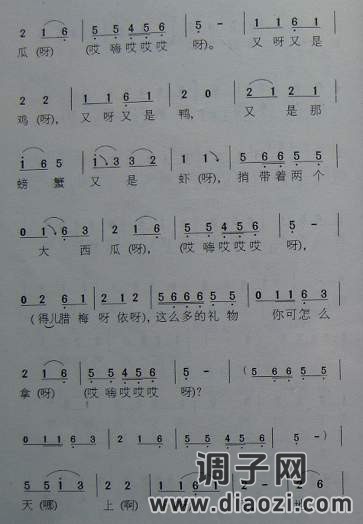 2 1 6 | 5 5 4 5 6 | 5 - | 1 1 6 1 |
瓜(呀) (哎 嗨哎哎哎 呀)。 又呀又是
2 2 | 1 1 6 1 | 2 0 | 2 1 2 1 |
鸡(呀), 又 呀 又 是 鸭, 又 是 那
i 6 5 | i 3 3 2 | 1 1 | 5 6 6 5 5 |
螃 蟹 又 是 虾(呀), 捎带着两个
0 1 6 3 | 2 1 6 | 5 5 4 5 6 | 5 - |
大 西 瓜(呀), (哎 嗨哎哎哎 呀),
0 2 6 1 | 2 1 2 1 | 5 6 6 6 5 5 | 0 1 1 6 3 |
(得儿腊 梅 呀 依呀), 这么多的礼物 你可怎么
2 1 6 | 5 5 4 5 6 | 5 - | (5 6 6 5 5 |
拿(呀) (哎 嗨哎哎哎 呀)?
0 1 1 6 3 | 2 1 6 | 5 5 4 5 6 | 5 - ) |
5 5 i 3 | 2
天(哪) 上(啊)
调子网
www.diaozi.com